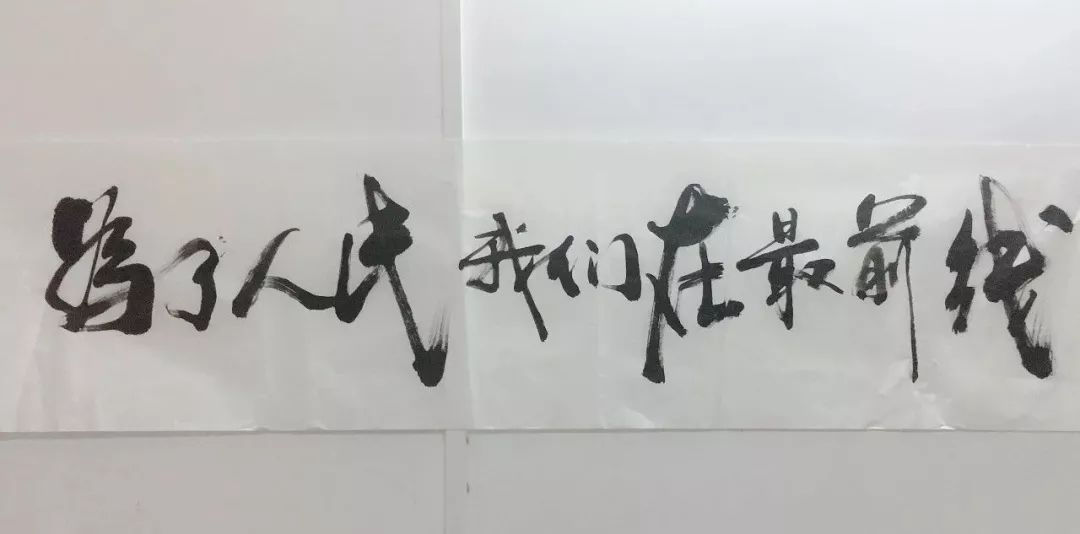 为了人民 我们在最前线